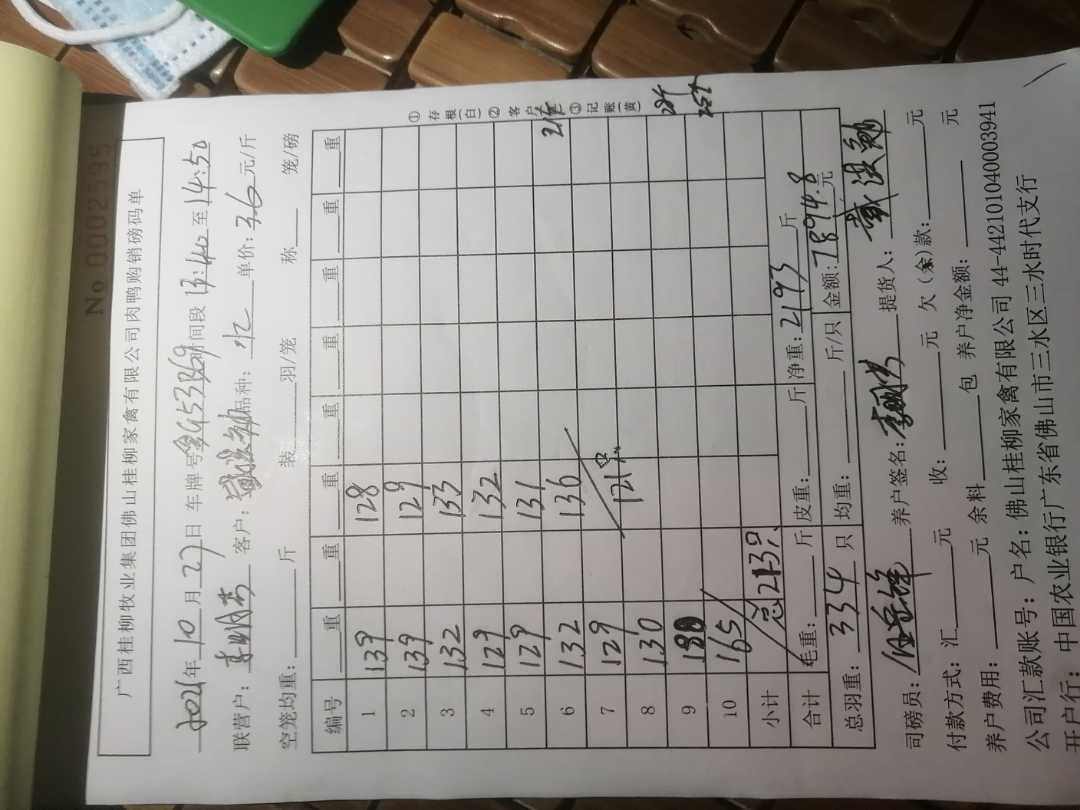 No 0002535
广西桂柳牧业集团佛山桂柳家禽有限公司肉鸭购销磅码单
2021年10月27日 车牌号 时间段13:40至14:50
联营户: 客户: 品种: 单价:3.6元/斤
空笼均重: 斤 装 羽/笼 称 笼/磅
编号 重 重 重 重 重 重 重 重
1 139 128
2 139 129
3 132 133
4 129 132
5 129 131
6 132 136
7 129
8 130 121只
9
10 165
小计 总213只
合计 毛重: 斤 皮重: 斤 净重:2193斤
总羽重:334只 均重: 斤/只 金额:7894.8元
司磅员: 养户签名: 提货人:
付款方式:汇 元 收: 元 欠(余)款: 元
养户费用: 元 余料 包 养户净金额: 元
公司汇款账号:户名:佛山桂柳家禽有限公司 44-442101040003941
开户行:中国农业银行广东省佛山市三水区三水时代支行
①存根(白)②客户 ③记账(黄)